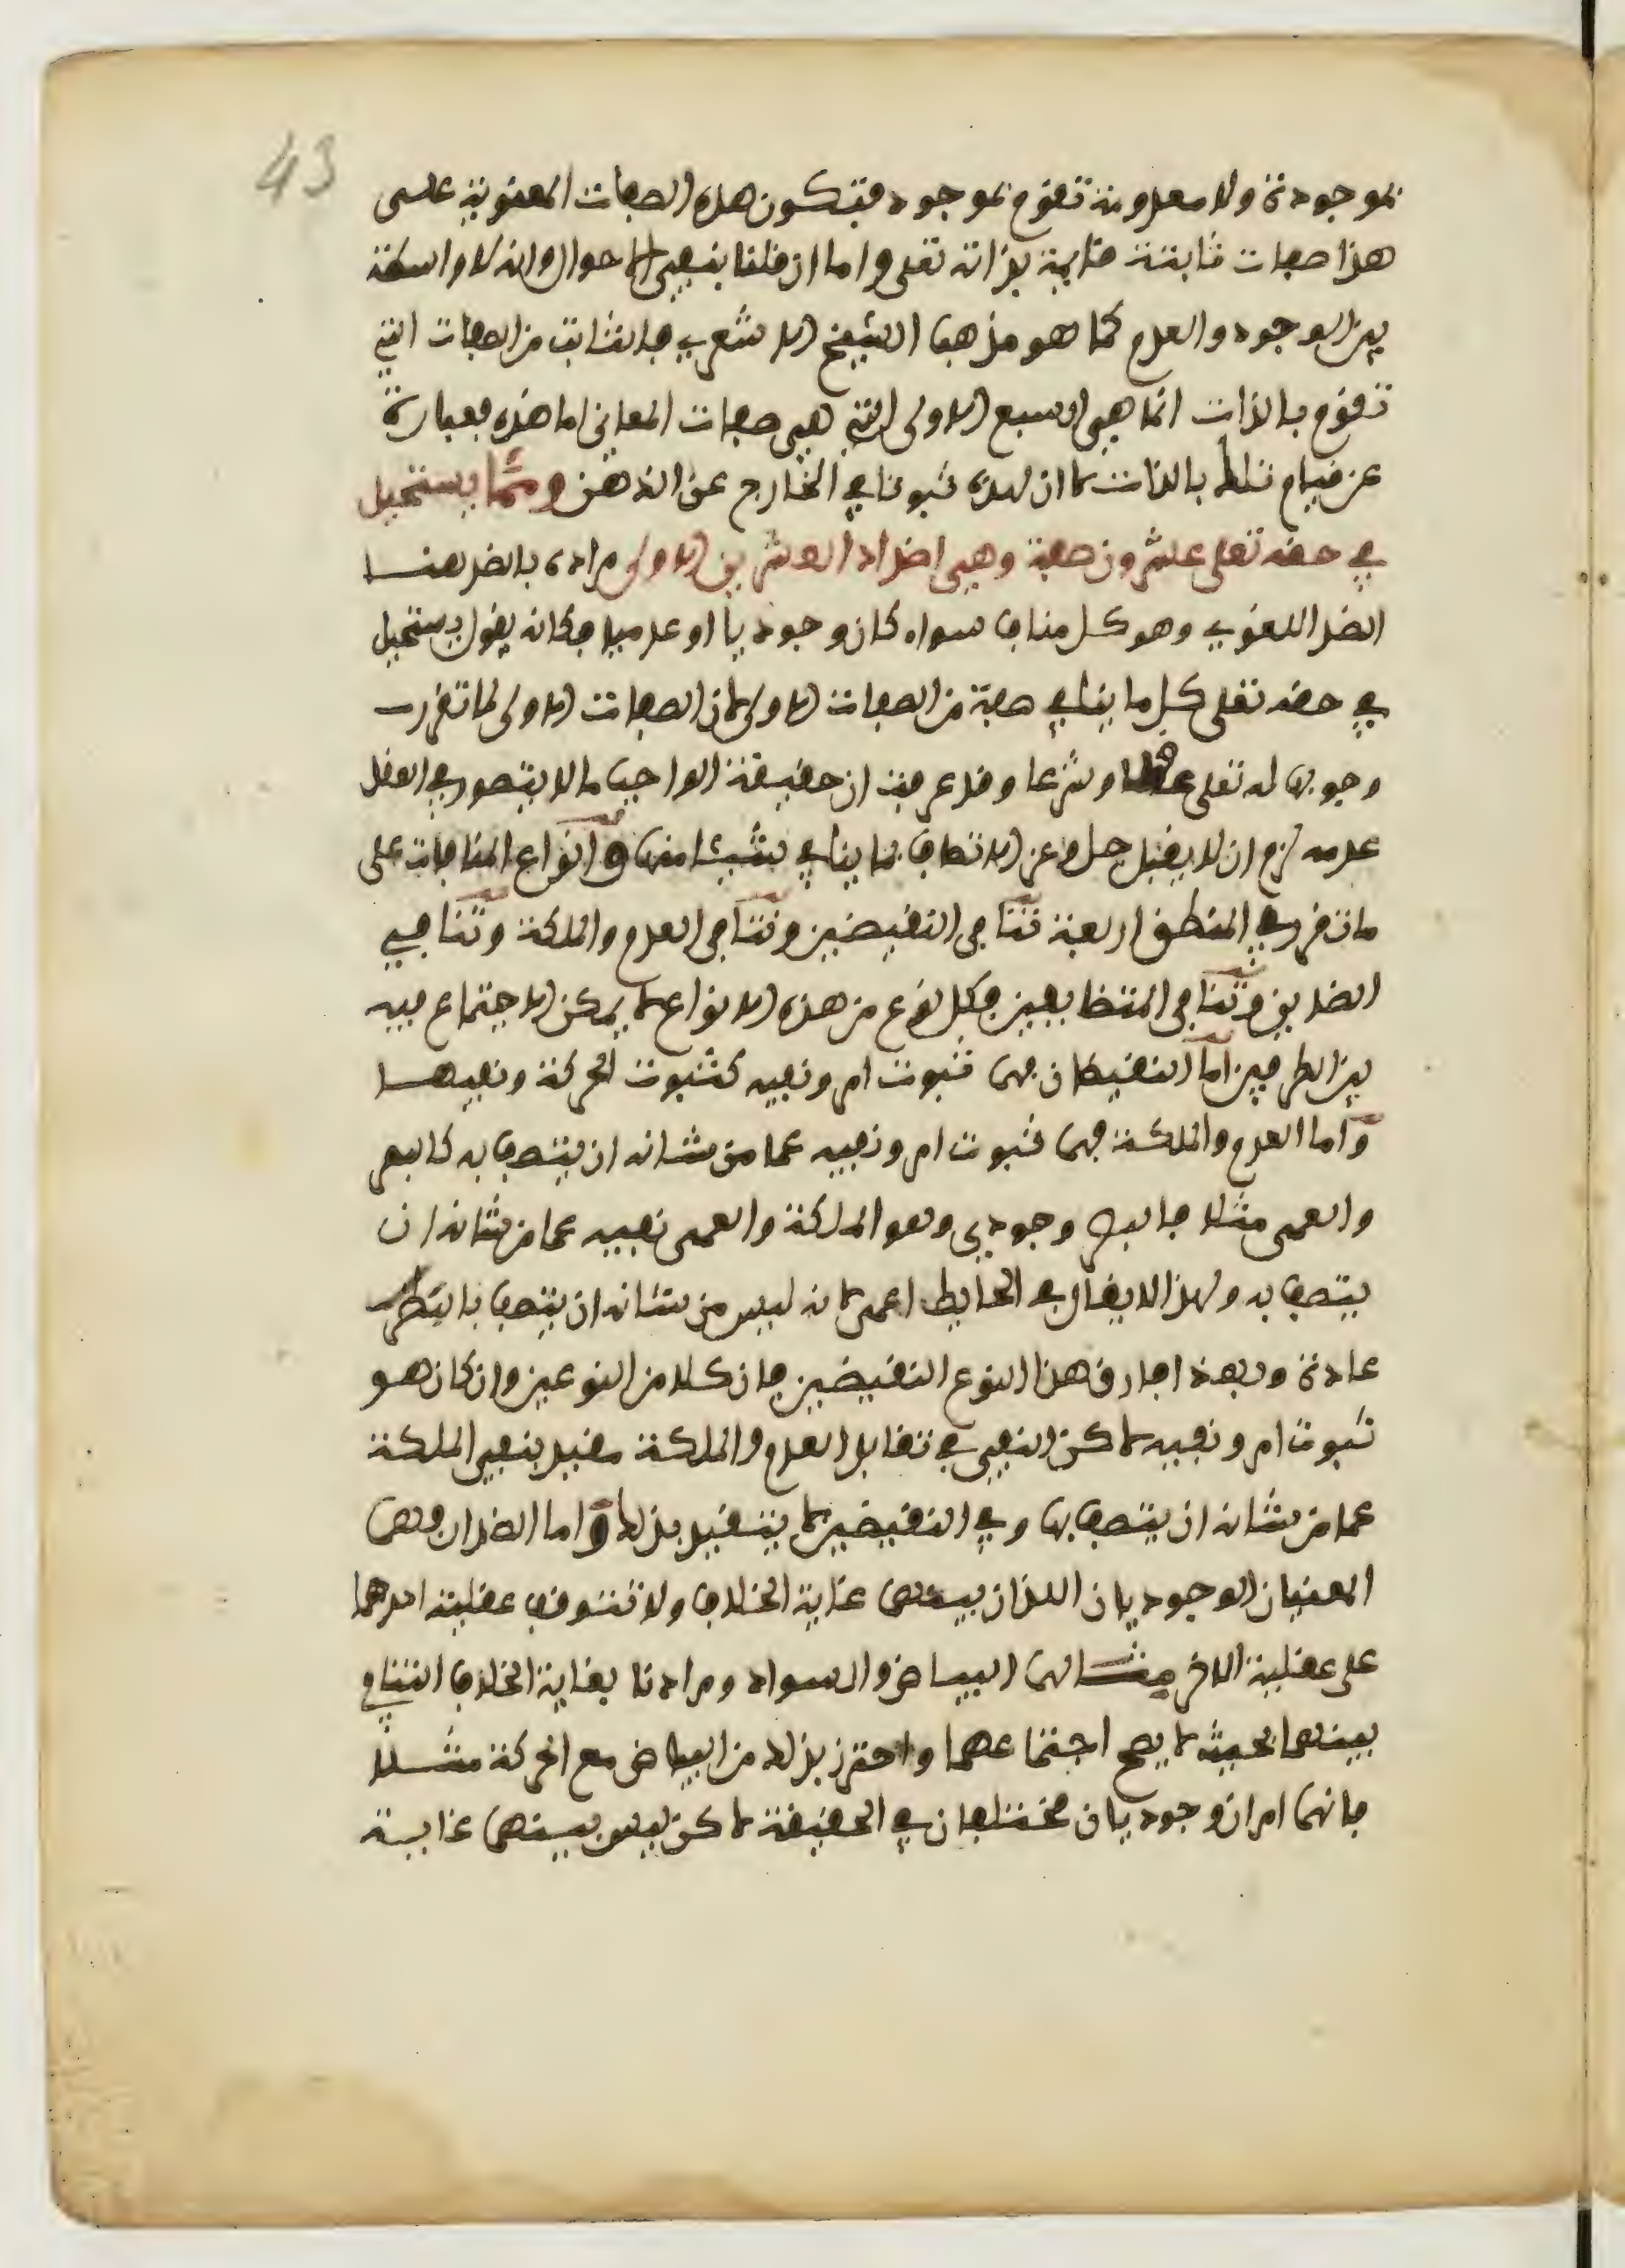 43
بموجودة ولا معدومة تقوم بموجود فتكون هذه الصفات المعنوية على
هذا صفات ثابتة قايمة بذاته تعلى واما ان قلنا بنفي الاحوال وانه لا واسطة
بين الوجود والعدم كما هو مذهب الشيخ الاشعري فالثابت من الصفات التي
تقوم بالذات انما هي السبع الاولى التي هي صفات المعاني اما هذه فعبارة
عن قيام تلك بالذات لا ان لهذه ثبوتا في الخارج عن الذهن ومما يستحيل
في حقه تعلى عشرون صفة وهي اضداد العشرين الاولى مراده بالضد هنا
الضد اللغوي وهو كل مناف سواء كان وجوديا او عدميا فكانه يقول يستحيل
في حقه تعلى كل ما ينافي صفة من الصفات الاولى لان الصفات الاولى لما تقرر
وجوبها له تعلى عقلا وشرعا وقد عرفت ان حقيقة الواجب ما لا يتصور في العقل
عدمه لزم ان لا يقبل جل وعز الاتصاف بما ينافي شيئا منها وانواع المنافات على
ما تقرر في المنطق اربعة تنافي النقيضين وتنافي العدم والملكة وتنافي
الضدين وتنافي المتضايفين فكل نوع من هذه الانواع لا يمكن الاجتماع فيه
بين الطرفين اما النقيضان فهما ثبوت امر ونفيه كثبوت الحركة ونفيها
واما العدم والملكة فهما ثبوت امر ونفيه عما من شانه ان يتصف به كالبصر
والعمى مثلا فالبصر وجودي وهو الملكة والعمى نفيه عما من شانه ان
يتصف به ولهذا لا يقال في الحايط اعمى لانه ليس من شانه ان يتصف بالبصر
عادة وبهذا فارق هذا النوع النقيضين فان كلا من النوعين وان كان هو
ثبوت امر ونفيه لاكن النفي في تقابل العدم والملكة مقيد بنفي الملكة
عما من شانه ان يتصف بها وفي النقيضين لا يتقيد بذلك واما الضدان فهما
المعنيان الوجوديان اللذان بينهما غاية الخلاف ولا تتوقف عقلية احدهما
على عقلية الاخر مثالهما البياض والسواد ومرادنا بغاية الخلاف التنافي
بينهما بحيث لا يصح اجتماعهما واحترز بذلك من البياض مع الحركة مثلا
فانهما امران وجوديان مختلفان في الحقيقة لاكن ليس بينهما غاية